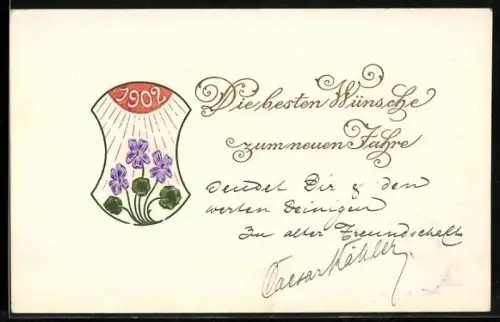 1902
Die besten Wünsche
zum neuen Jahre
sendet Dir & den
werten Deinigen
In alter Freundschaft
Caesar Köhler